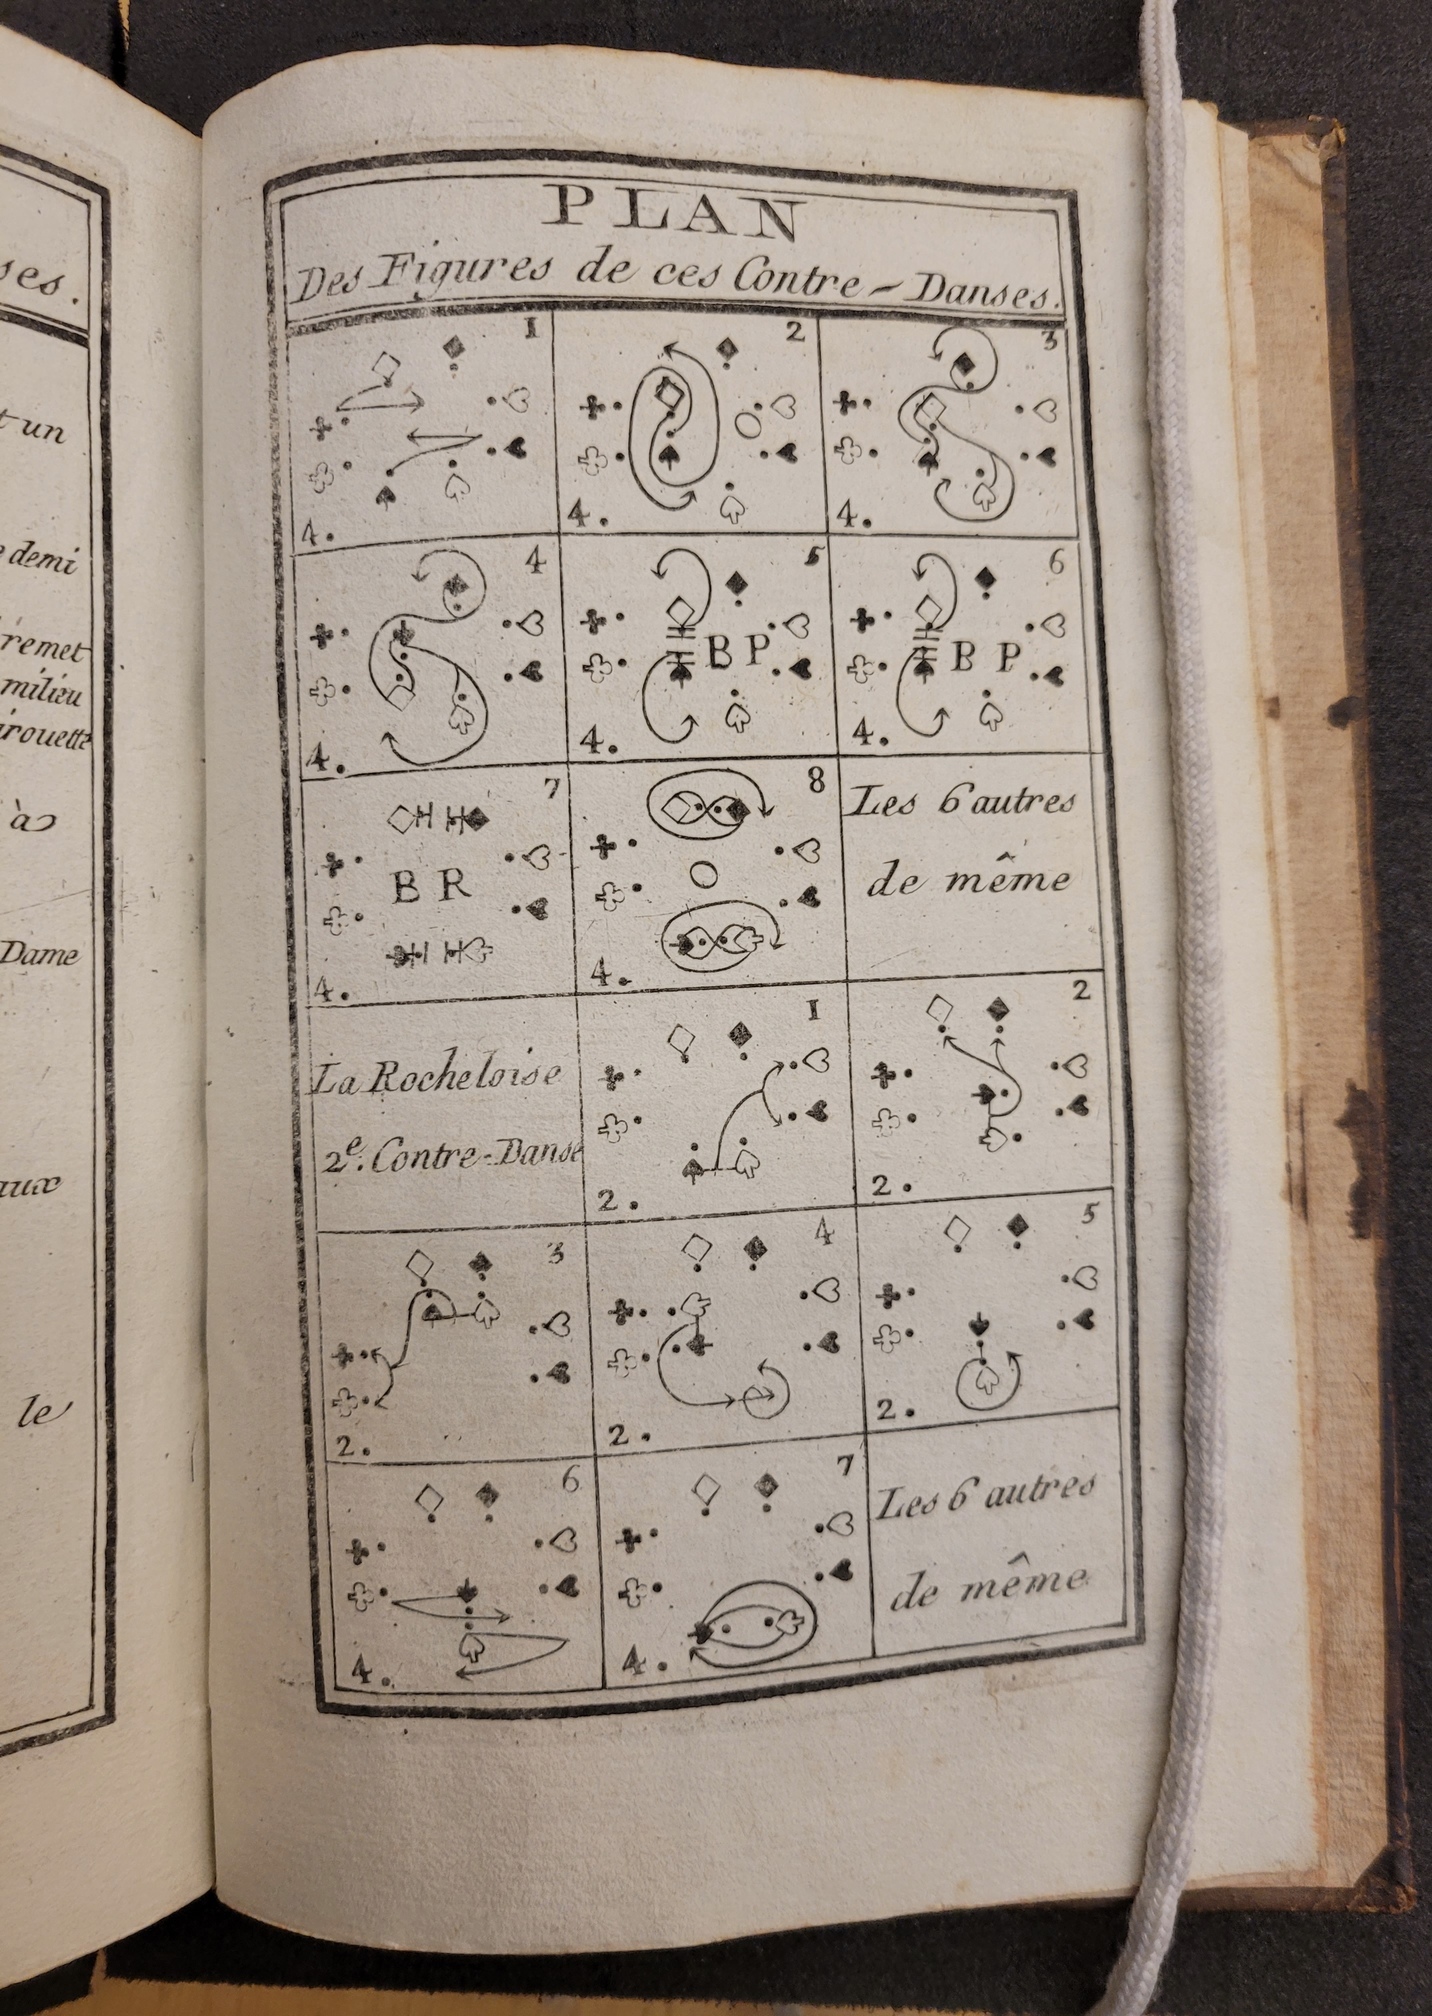 ses.
t un
demi
remet
milieu
irouette
à
Dame
aux
le
PLAN
Des Figures de ces Contre-Danses.
1
4.
2
4.
3
4.
4
4.
5
B P
4.
6
B P
4.
7
B R
4.
8
4.
Les 6 autres
de même
La Rocheloise
2e. Contre-Danse
1
2.
2
2.
3
2.
4
2.
5
2.
6
4.
7
4.
Les 6 autres
de même